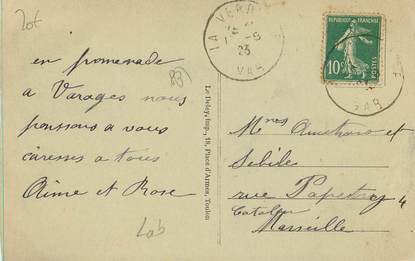 Lot
en promenade
a Varages nous
pensons a vous
caresses a tous
Aimé et Rose
83
Lab
Le Deley, Imp., 19, Place d'Armes, Toulon
LA VERD
1 -9
23
VAR
REPUBLIQUE FRANÇAISE
10c
POSTES
VAR
et
rue
4
Catalan
Marseille